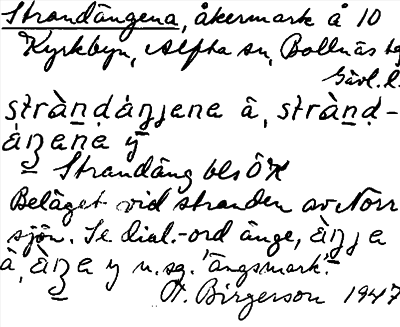 Strandängena, åkermark å 10
Kyrkbyn, Alfta sn, Bollnäs tg
Gävl. l.
stràṇdáŋjene ä, stràṇḍ-
áŋene y
Strandäng bls ÖK
Beläget vid stranden av Norr
sjön. Se dial.-ord änge, àŋje
ä, àŋe y n. sg. 'ängsmark'.
W. Birgerson 1947